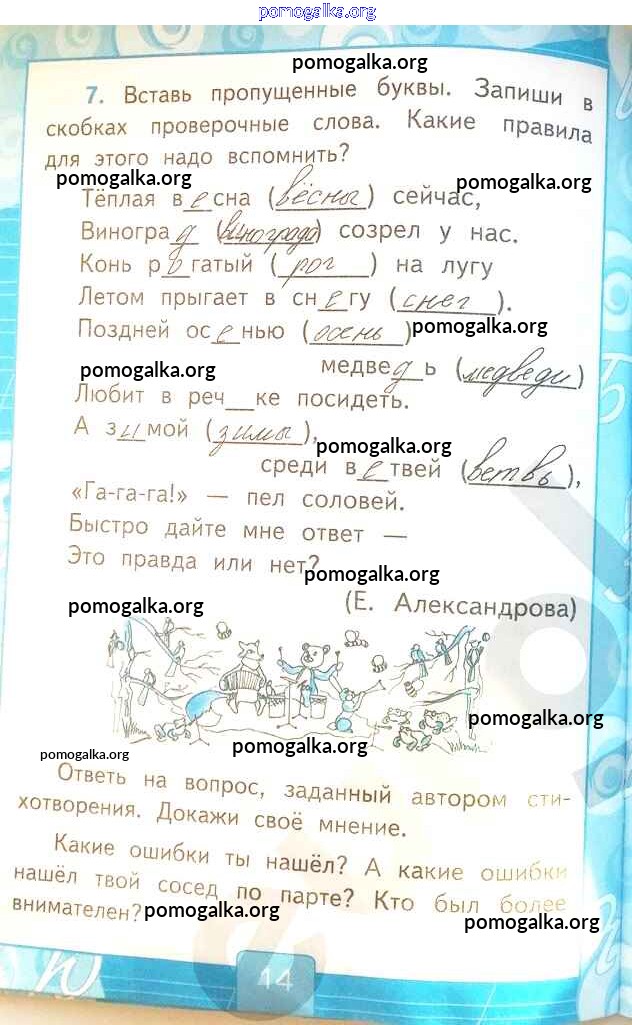 pomogalka.org
pomogalka.org
7. Вставь пропущенные буквы. Запиши в
скобках проверочные слова. Какие правила
для этого надо вспомнить?
pomogalka.org pomogalka.org
Тёплая в е сна (вёсны) сейчас,
Виногра д (винограда) созрел у нас.
Конь р о гатый (рог) на лугу
Летом прыгает в сн е гу (снег).
Поздней ос е нью (осень) pomogalka.org
pomogalka.org медве д ь (медведи)
Любит в реч__ке посидеть.
А з и мой (зимы), pomogalka.org
среди в е твей (ветвь),
«Га-га-га!» — пел соловей.
Быстро дайте мне ответ —
Это правда или нет?
pomogalka.org
pomogalka.org (Е. Александрова)
pomogalka.org
pomogalka.org pomogalka.org
Ответь на вопрос, заданный автором сти-
хотворения. Докажи своё мнение.
Какие ошибки ты нашёл? А какие ошибки
нашёл твой сосед по парте? Кто был более
внимателен? pomogalka.org
pomogalka.org
14